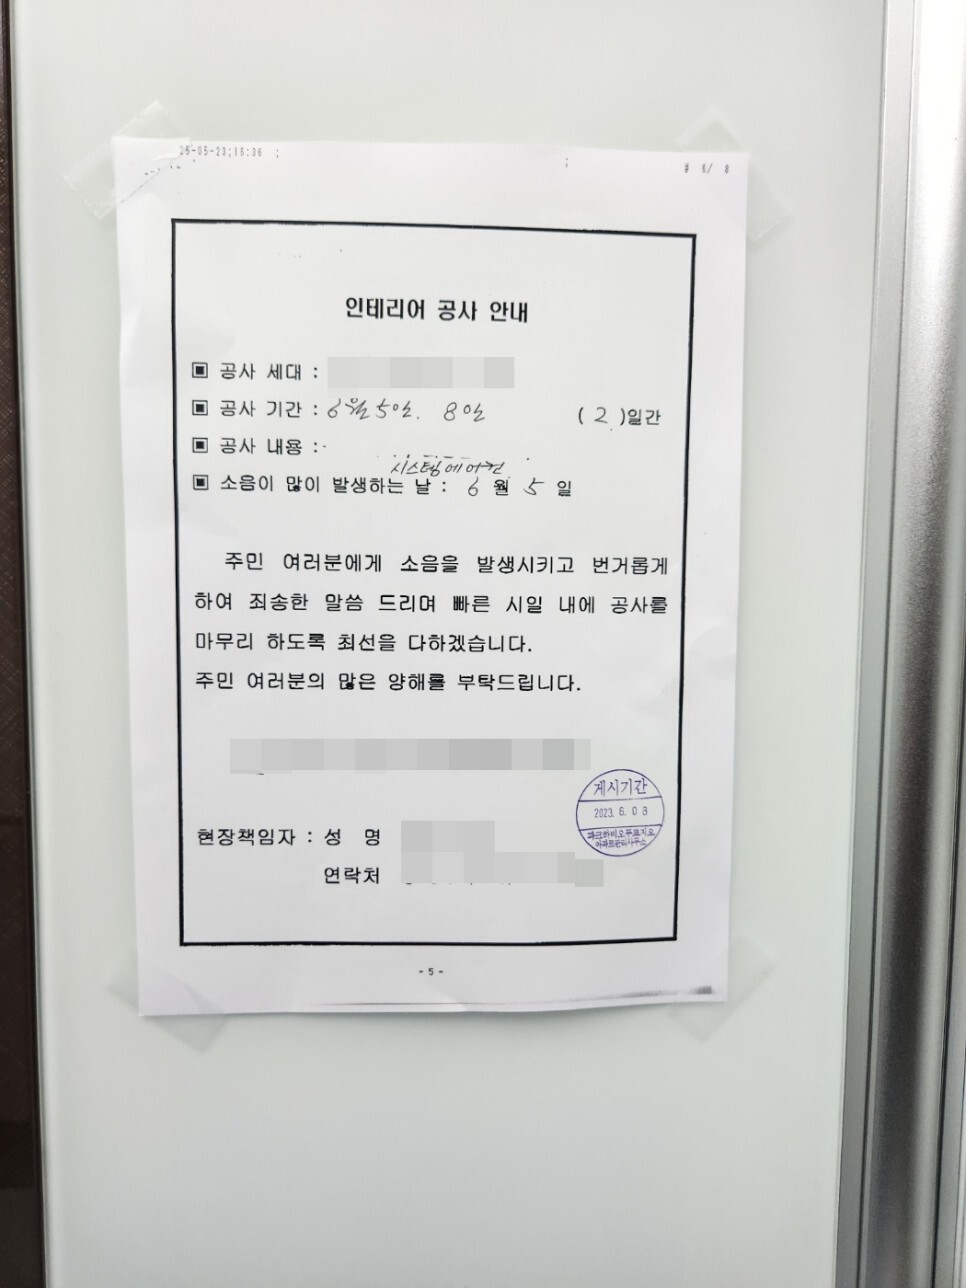 25-05-23;16:06 ; ; # 6/ 8
인테리어 공사 안내
▣ 공사 세대 :
▣ 공사 기간 : 6월 5일. 8일 ( 2 )일간
▣ 공사 내용 :
시스템에어컨
▣ 소음이 많이 발생하는 날 : 6 월 5 일
주민 여러분에게 소음을 발생시키고 번거롭게
하여 죄송한 말씀 드리며 빠른 시일 내에 공사를
마무리 하도록 최선을 다하겠습니다.
주민 여러분의 많은 양해를 부탁드립니다.
게시기간
2023. 6. 0 8
파크하비오푸르지오
아파트관리사무소
현장책임자 : 성 명
연락처
- 5 -